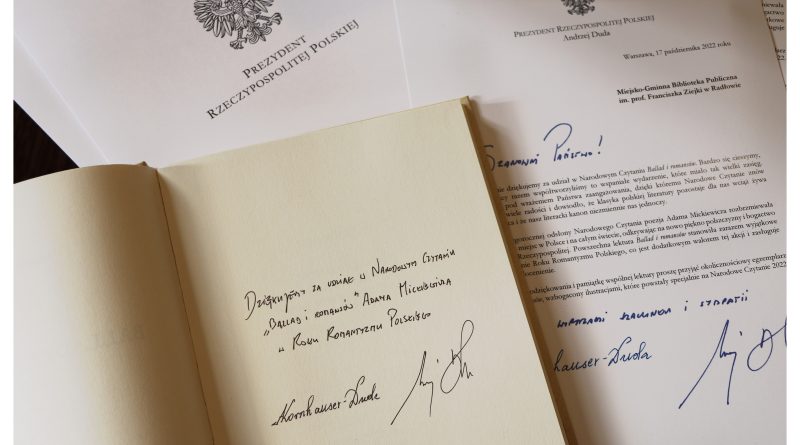 PREZYDENT
RZECZYPOSPOLITEJ POLSKIEJ
PREZYDENT RZECZYPOSPOLITEJ POLSKIEJ
Andrzej Duda
Warszawa, 17 października 2022 roku
Miejsko-Gminna Biblioteka Publiczna
im. prof. Franciszka Ziejki w Radłowie
Szanowni Państwo!
dziękujemy za udział w Narodowym Czytaniu Ballad i romansów. Bardzo się cieszymy,
razem współtworzyliśmy to wspaniałe wydarzenie, które miało tak wielki zasięg.
pod wrażeniem Państwa zaangażowania, dzięki któremu Narodowe Czytanie znów
wiele radości i dowiodło, że klasyka polskiej literatury pozostaje dla nas wciąż żywa
i że nasz literacki kanon niezmiennie nas jednoczy.
odsłony Narodowego Czytania poezja Adama Mickiewicza rozbrzmiewała
miejsc w Polsce i na całym świecie, odkrywając na nowo piękno polszczyzny i bogactwo
Rzeczypospolitej. Powszechna lektura Ballad i romansów stanowiła zarazem wyjątkowe
Roku Romantyzmu Polskiego, co jest dodatkowym walorem tej akcji i zasługuje
i pamiątkę wspólnej lektury proszę przyjąć okolicznościowy egzemplarz
wzbogacony ilustracjami, które powstały specjalnie na Narodowe Czytanie 2022
wyrazami szacunku i sympatii
hauser-Duda
Dziękujemy za udział w Narodowym Czytaniu
„Ballad i romansów" Adama Mickiewicza
w Roku Romantyzmu Polskiego
Kornhauser-Duda